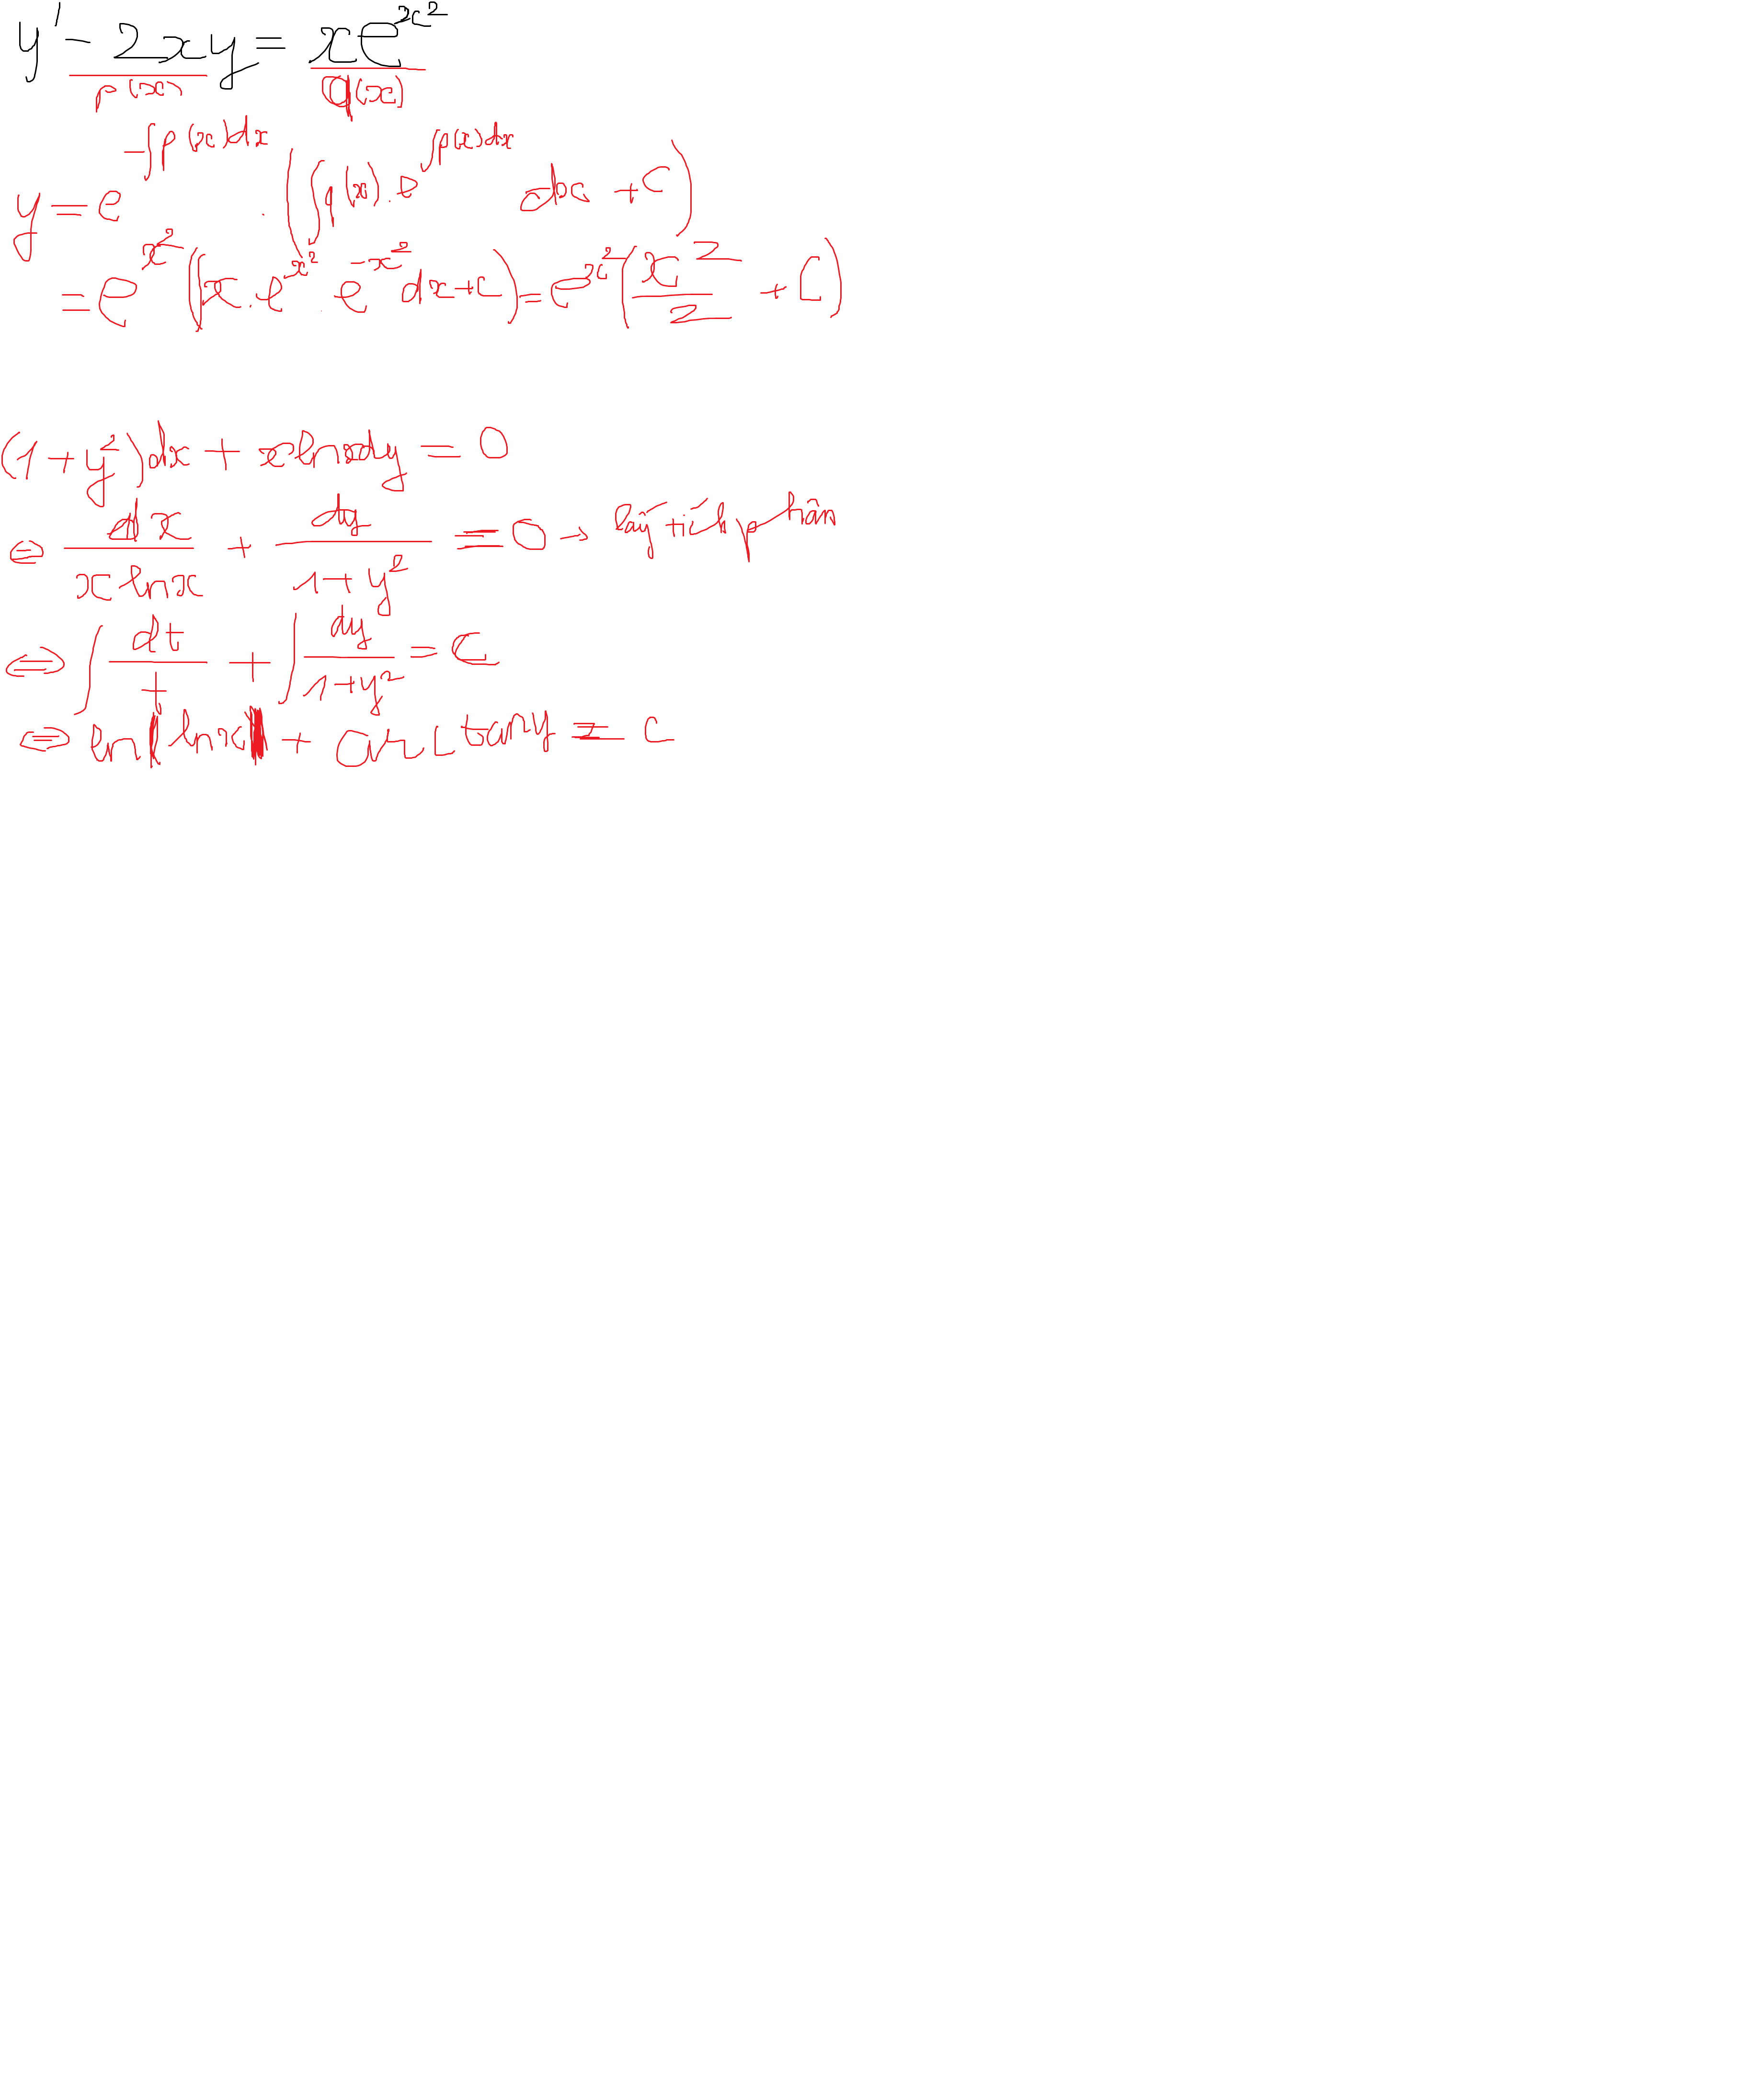 y' - 2xy = xe^{x^2}
p(x) q(x)
y = e^{-∫p(x)dx} . (∫q(x).e^{∫p(x)dx} dx + C)
= e^{x^2} (∫x.e^{x^2}.e^{-x^2}dx + C) = e^{x^2}(x^2/2 + C)
(1+y^2)dx + xlnxdy = 0
⇔ dx/(x lnx) + dy/(1+y^2) = 0 → lấy tích phân
⇔ ∫dt/t + ∫dy/(1+y^2) = C
⇔ ln|lnx| + arctany = C